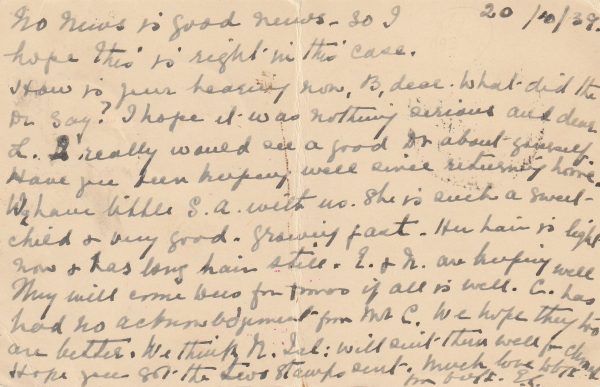 20/10/39.
No News is good news - so I
hope this is right in this case.
How is your hearing now, B, dear. What did the
Dr say? I hope it was nothing serious and dear
L. I really would see a good Dr about yourself
Have you been keeping well since returning home.
We have little S. A. with us. She is such a sweet
child & very good. Growing fast. Her hair is light
now & has long hair still. E. & N. are keeping well
They will come here for if all is well. C. has
had no acknowledgment from Mr C. We hope they too
are better. We think N. Isl: will suit them well for
Hope you got the two stamps sent. Much love to
from